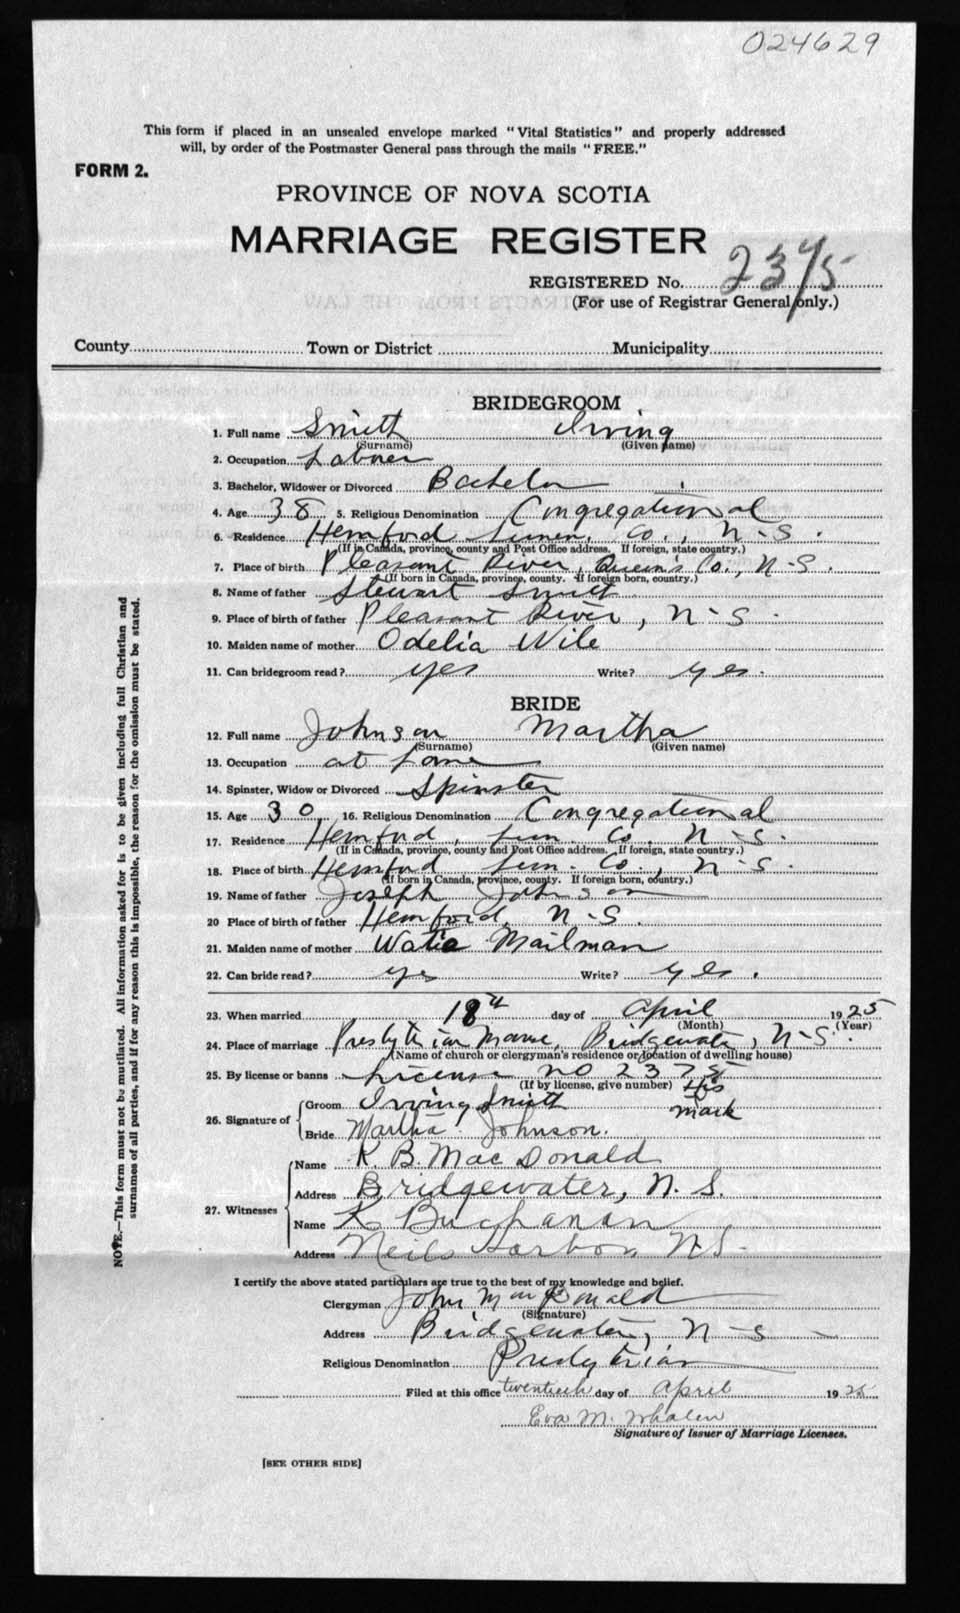 024629
This form if placed in an unsealed envelope marked "Vital Statistics" and properly addressed
will, by order of the Postmaster General pass through the mails "FREE."
FORM 2.
PROVINCE OF NOVA SCOTIA
MARRIAGE REGISTER
REGISTERED No. 2375
(For use of Registrar General only.)
County Town or District Municipality
BRIDEGROOM
1. Full name Smith Irving
(Surname) (Given name)
2. Occupation Laborer
3. Bachelor, Widower or Divorced Bachelor
4. Age 38 5. Religious Denomination Congregational
6. Residence Hemford Lunen. Co., N-S.
(If in Canada, province, county and Post Office address. If foreign, state country.)
7. Place of birth Pleasant River, Queen's Co., N-S.
(If born in Canada, province, county. If foreign born, country.)
8. Name of father Stewart Smith
9. Place of birth of father Pleasant River, N-S.
10. Maiden name of mother Odelia Wile
11. Can bridegroom read? yes Write? yes.
BRIDE
12. Full name Johnson Martha
(Surname) (Given name)
13. Occupation at home
14. Spinster, Widow or Divorced Spinster
15. Age 30 16. Religious Denomination Congregational
17. Residence Hemford, Lun. Co. N-S.
(If in Canada, province, county and Post Office address. If foreign, state country.)
18. Place of birth Hemford Lun. Co., N-S.
(If born in Canada, province, county. If foreign born, country.)
19. Name of father Joseph Johnson
20 Place of birth of father Hemford, N-S.
21. Maiden name of mother Watie Mailman
22. Can bride read? yes Write? yes.
23. When married 18th day of April 1925
(Month) (Year)
24. Place of marriage Presbyterian Manse, Bridgewater, N-S.
(Name of church or clergyman's residence or location of dwelling house)
25. By license or banns License no 2375
(If by license, give number) His
26. Signature of Groom Irving Smith mark
Bride Martha Johnson.
27. Witnesses
Name K. B. MacDonald
Address Bridgewater, N. S.
Name K Buchanan
Address Neils Harbor N.S.
I certify the above stated particulars are true to the best of my knowledge and belief.
Clergyman John MacDonald
(Signature)
Address Bridgewater, N-S
Religious Denomination Presbyterian
Filed at this office twentieth day of April 1925
Eva M. Whalen
Signature of Issuer of Marriage Licenses.
[SEE OTHER SIDE]
NOTE.—This form must not be mutilated. All information asked for is to be given including full Christian and
surnames of all parties, and if for any reason this is impossible, the reason for the omission must be stated.